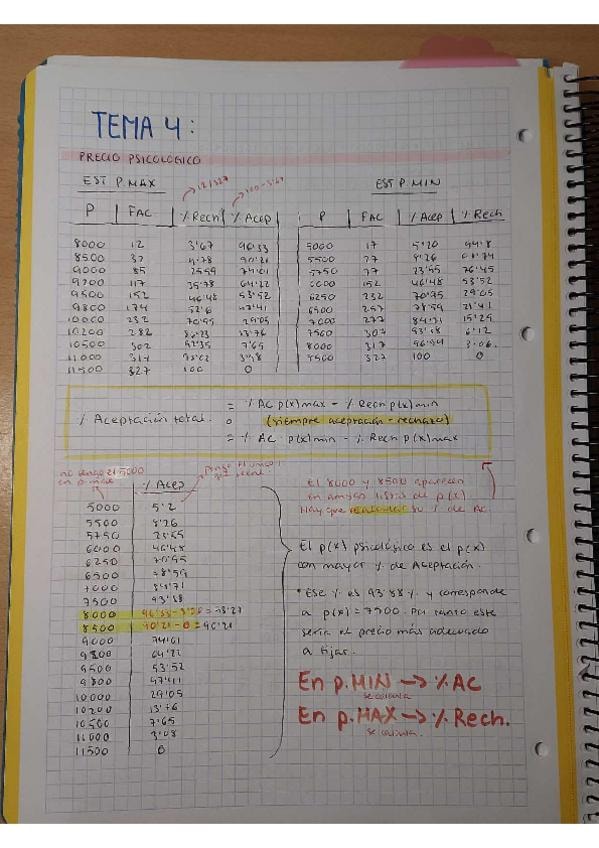 TEMA 4:
PRECIO PSICOLOGICO
EST P.MAX
12/327
100-3'67
EST P.MIN
P FAC % Rech % Acep
P FAC % Acep % Rech
8000 12 3'67 96'33
5000 17 5'20 94'8
8500 32 9'78 90'21
5500 27 8'26 91'74
9000 85 25'99 74'01
5750 77 23'55 76'45
117 35'78 64'22
6000 152 46'48 53'52
9500 152 46'48 53'52
6250 232 70'95 29'05
9800 174 47'41
6500 257 78'59 21'41
10000 232 70'95 29'05
7000 277 84'71 15'29
10200 282 86'23 13'76
7500 307 93'88 6'12
10500 302 92'35 7'65
8000 317 96'94 3'06.
11000 317 3'08
8500 327 100 0
11500 327 100 0
= % AC p(x)max - % Rech p(x)min
% Aceptación total. o (siempre aceptación - rechazo)
= % AC p(x)min - % Rech p(x)max
no tengo el 5000
en p.max
% Acep
pongo el único
5000 5'2
5500 8'26
5750 23'55
6000 46'48
6250 70'95
6500 78'59
7000 84'71
7500 93'88
8000 96'33-3'06 = 93'27
8500 90'21-0 = 90'21
9000 74'01
64'22
9500 53'52
9800 47'41
10000 29'05
10200 13'76
10500 7'65
11000 3'08
11500 0
El 8000 y 8500 aparecen
en ambas listas de p(x)
Hay que su % de AC.
El p(x) psicológico es el p(x)
con mayor % de Aceptación.
• Ese % es 93'88% y corresponde
a p(x) = 7500. Por tanto este
sería el precio más adecuado
a fijar.
En p.MIN → % AC
se calcula
En p.MAX → % Rech.
se calcula.